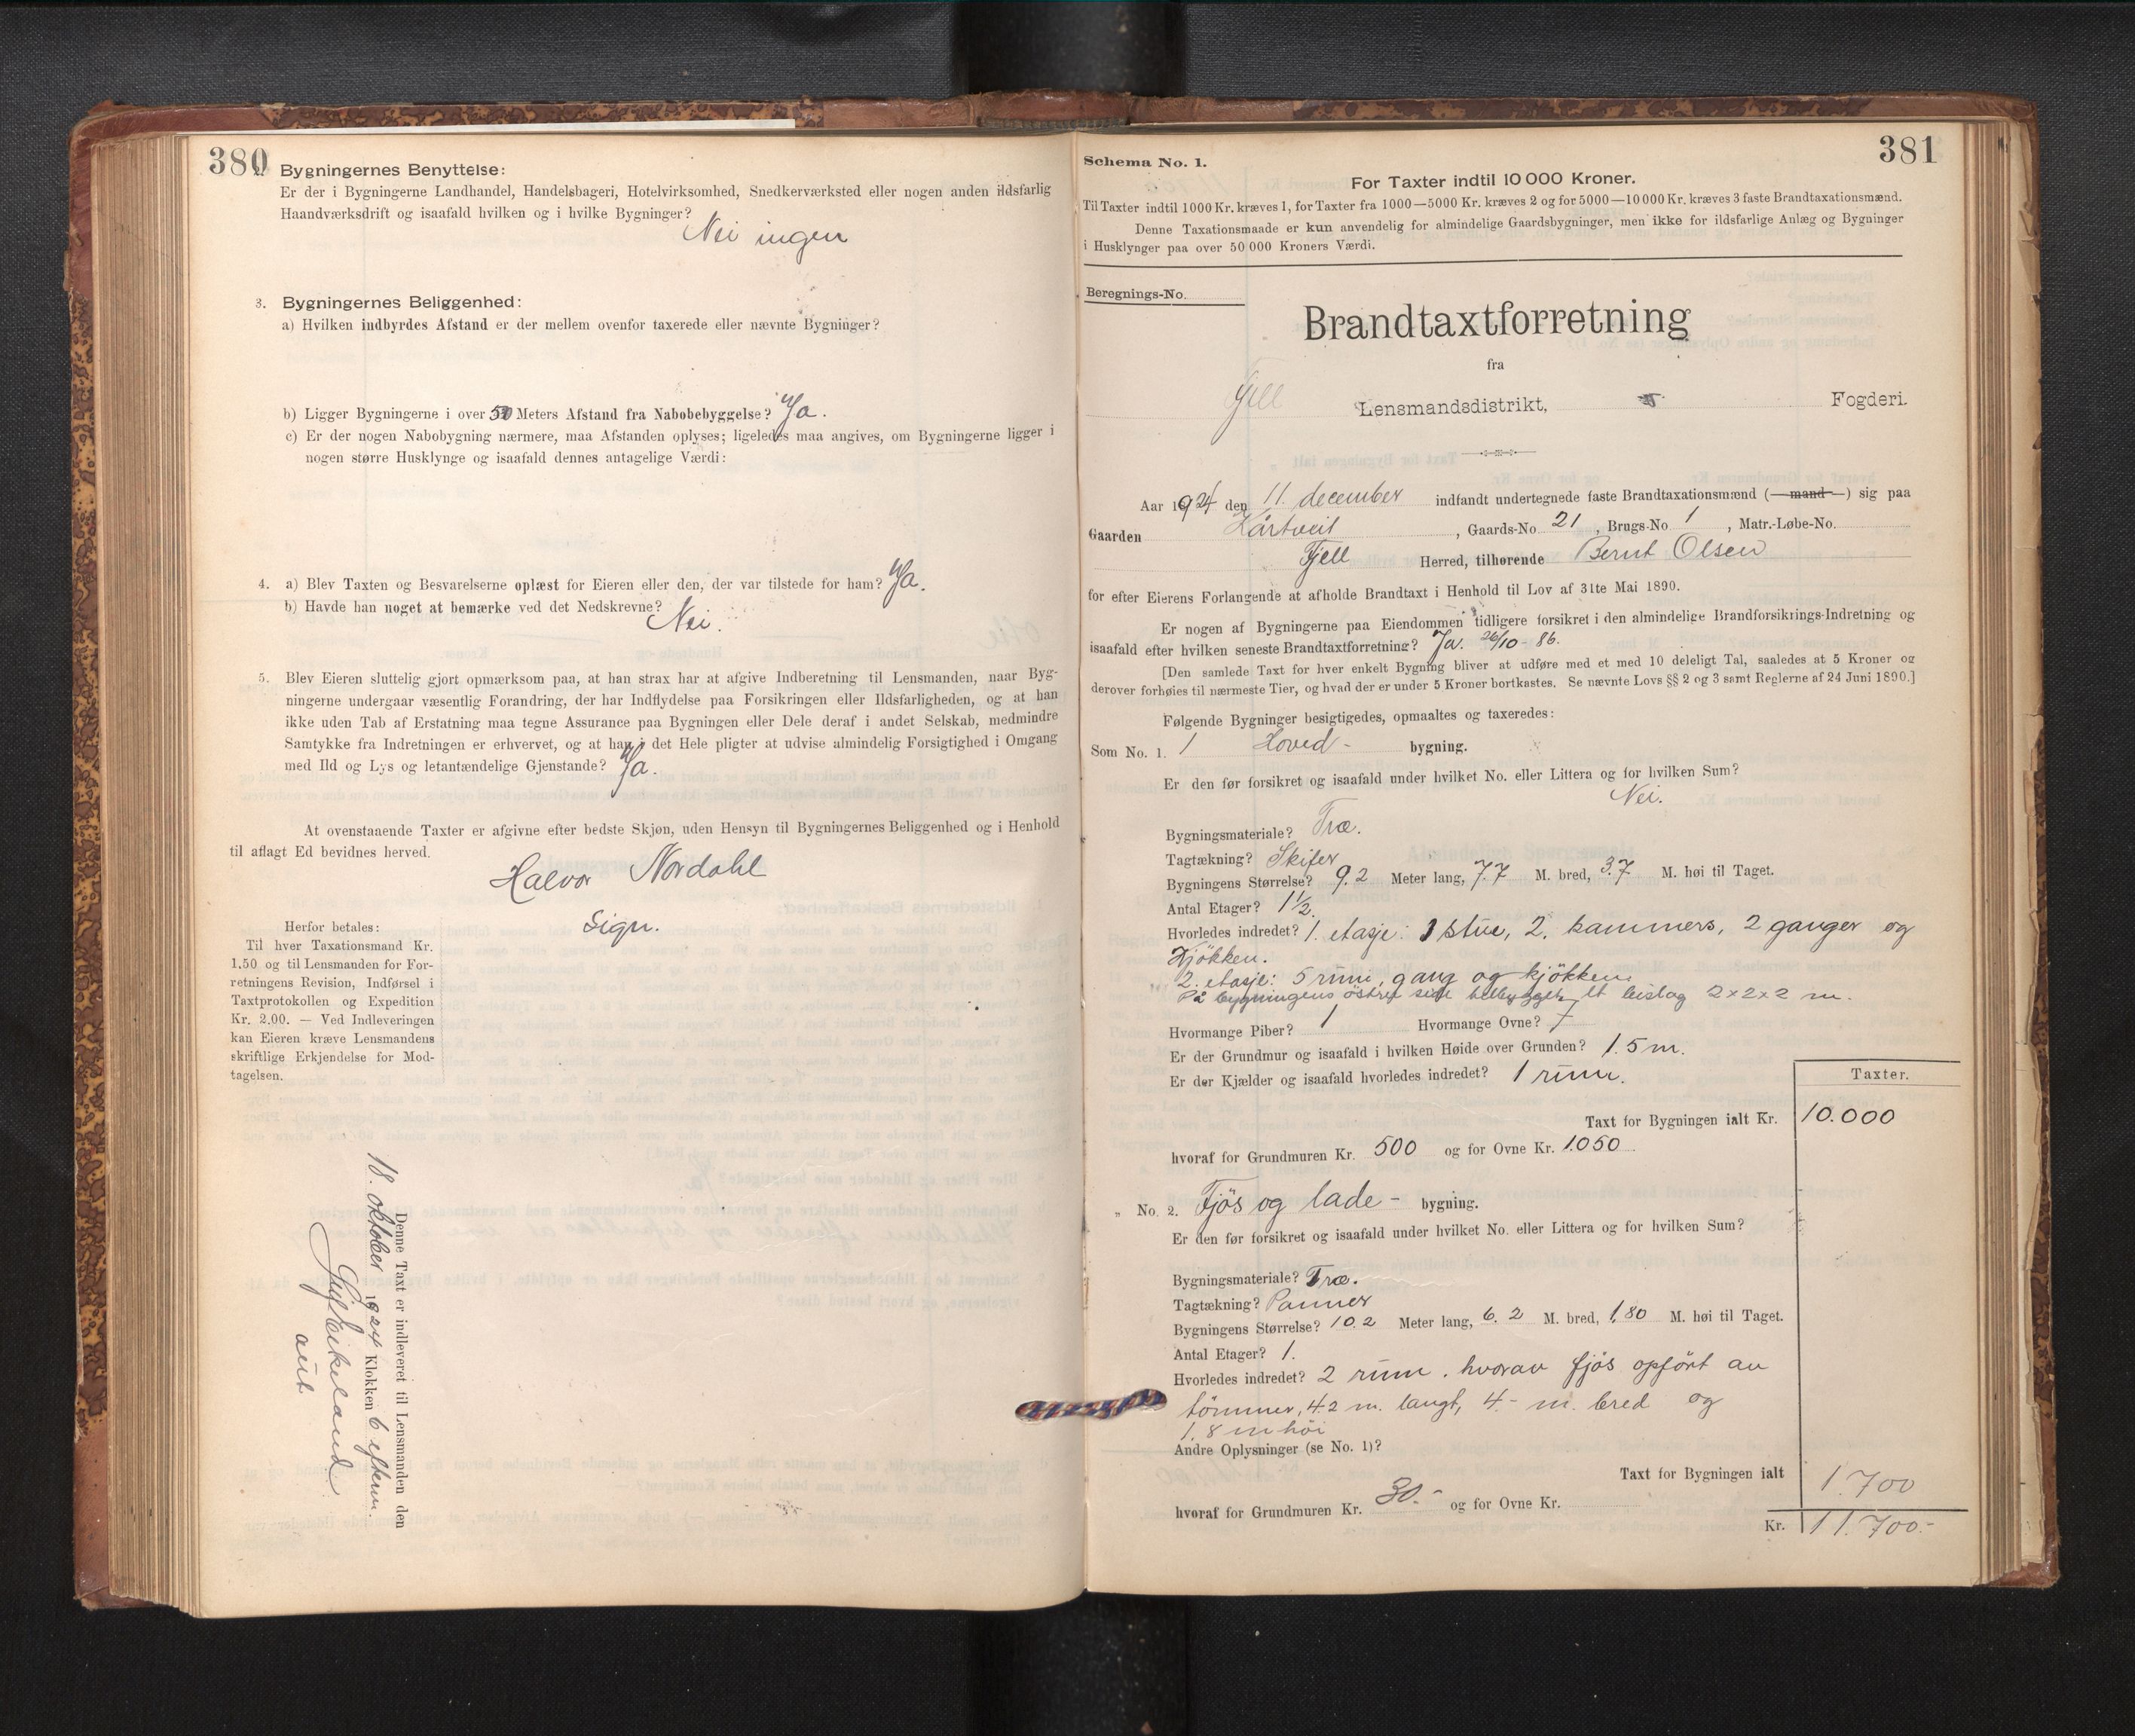 380
2. Bygningernes Benyttelse:
Er der i Bygningerne Landhandel, Handelsbageri, Hotelvirksomhed, Snedkerværksted eller nogen anden ildsfarlig
Haandværksdrift og isaafald hvilken og i hvilke Bygninger?
Nei ingen
3. Bygningernes Beliggenhed:
a) Hvilken indbyrdes Afstand er der mellem ovenfor taxerede eller nævnte Bygninger?
b) Ligger Bygningerne i over 50 Meters Afstand fra Nabobebyggelse? Ja.
c) Er der nogen Nabobygning nærmere, maa Afstanden oplyses; ligeledes maa angives, om Bygningerne ligger i
nogen større Husklynge og isaafald dennes antagelige Værdi:
4. a) Blev Taxten og Besvarelserne oplæst for Eieren eller den, der var tilstede for ham? Ja.
b) Havde han noget at bemærke ved det Nedskrevne?
Nei.
5. Blev Eieren sluttelig gjort opmærksom paa, at han strax har at afgive Indberetning til Lensmanden, naar Byg-
ningerne undergaar væsentlig Forandring, der har Indflydelse paa Forsikringen eller Ildsfarligheden, og at han
ikke uden Tab af Erstatning maa tegne Assurance paa Bygningen eller Dele deraf i andet Selskab, medmindre
Samtykke fra Indretningen er erhvervet, og at han i det Hele pligter at udvise almindelig Forsigtighed i Omgang
med Ild og Lys og letantændelige Gjenstande? Ja.
At ovenstaaende Taxter er afgivne efter bedste Skjøn, uden Hensyn til Bygningernes Beliggenhed og i Henhold
til aflagt Ed bevidnes herved.
Halvor Nordahl
Sign.
Herfor betales:
Til hver Taxationsmand Kr.
1,50 og til Lensmanden for For-
retningens Revision, Indførsel i
Taxtprotokollen og Expedition
Kr. 2.00. — Ved Indleveringen
kan Eieren kræve Lensmandens
skriftlige Erkjendelse for Mod-
tagelsen.
Denne Taxt er indleveret til Lensmanden den
18. oktober 1924 Klokken 6 efterm.
Eikeland
aut
381
Schema No. 1.
For Taxter indtil 10 000 Kroner.
Til Taxter indtil 1000 Kr. kræves 1, for Taxter fra 1000—5000 Kr. kræves 2 og for 5000—10 000 Kr. kræves 3 faste Brandtaxationsmænd.
Denne Taxationsmaade er kun anvendelig for almindelige Gaardsbygninger, men ikke for ildsfarlige Anlæg og Bygninger
i Husklynger paa over 50 000 Kroners Værdi.
Beregnings-No.
Brandtaxtforretning
fra
Fjell Lensmandsdistrikt, Fogderi.
Aar 1924 den 11. december indfandt undertegnede faste Brandtaxationsmænd (—mand—) sig paa
Gaarden Kårtveit, Gaards-No. 21, Brugs-No 1, Matr.-Løbe-No.
Fjell Herred, tilhørende Bernt Olsen
for efter Eierens Forlangende at afholde Brandtaxt i Henhold til Lov af 31te Mai 1890.
Er nogen af Bygningerne paa Eiendommen tidligere forsikret i den almindelige Brandforsikrings-Indretning og
isaafald efter hvilken seneste Brandtaxtforretning? Ja. 26/10 - 86.
[Den samlede Taxt for hver enkelt Bygning bliver at udføre med et med 10 deleligt Tal, saaledes at 5 Kroner og
derover forhøies til nærmeste Tier, og hvad der er under 5 Kroner bortkastes. Se nævnte Lovs §§ 2 og 3 samt Reglerne af 24 Juni 1890.]
Følgende Bygninger besigtigedes, opmaaltes og taxeredes:
Som No. 1. 1 Hoved- bygning.
Er den før forsikret og isaafald under hvilket No. eller Littera og for hvilken Sum?
Nei.
Bygningsmateriale? Træ.
Tagtækning? Skifer
Bygningens Størrelse? 9.2 Meter lang, 7.7 M. bred, 3.7 M. høi til Taget.
Antal Etager? 1 1/2.
Hvorledes indredet? 1. etasje: 1 stue, 2. kammers, 2 ganger og
Kjökken.
2. etasje: 5 rum, gang og kjökken.
På bygningens östre side tilbygget et bislag 2x2x2 m.
Hvormange Piber? 1 Hvormange Ovne? 7
Er der Grundmur og isaafald i hvilken Høide over Grunden? 1.5 m.
Er der Kjælder og isaafald hvorledes indredet? 1 rum.
Taxter.
Taxt for Bygningen ialt Kr. 10.000
hvoraf for Grundmuren Kr. 500 og for Ovne Kr. 1050
„ No. 2. Fjös og lade- bygning.
Er den før forsikret og isaafald under hvilket No. eller Littera og for hvilken Sum?
Bygningsmateriale? Træ.
Tagtækning? Panner
Bygningens Størrelse? 10.2 Meter lang, 6.2 M. bred, 1,80 M. høi til Taget.
Antal Etager? 1.
Hvorledes indredet? 2 rum. hvorav fjös opfört av
tömmer, 4.2 m. langt, 4.- m. bred og
1.8 m höi
Andre Oplysninger (se No. 1)?
Taxt for Bygningen ialt 1.700
hvoraf for Grundmuren Kr. 30.- og for Ovne Kr.
Kr. 11.700.-